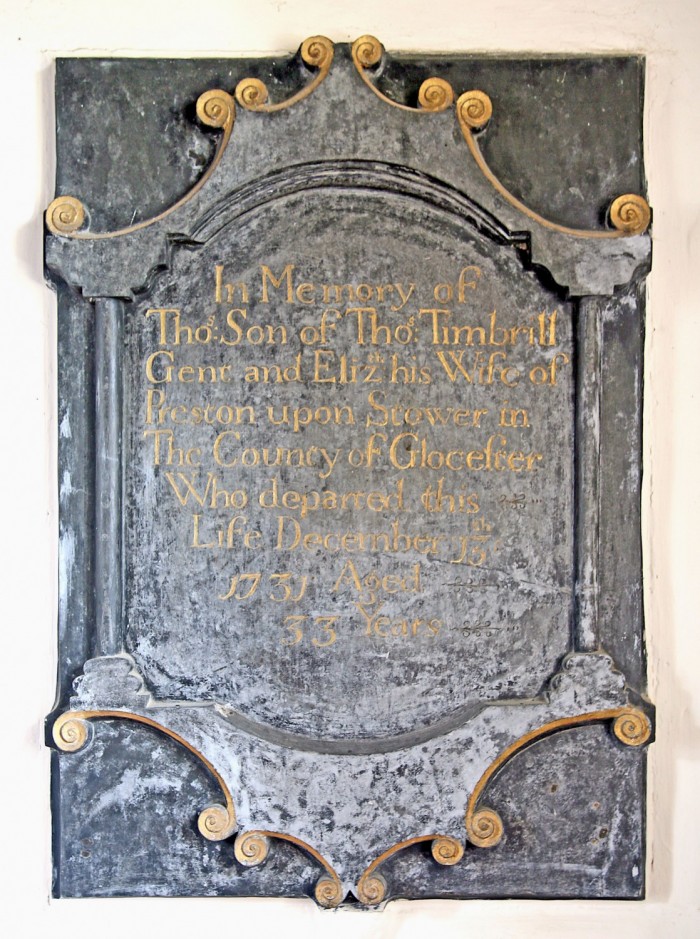 In Memory of
Thos. Son of Thos. Timbrill
Gent and Elizth his Wife of
Preston upon Stower in
The County of Gloceſter
Who departed this
Life December 15th
1731 Aged
33 Years